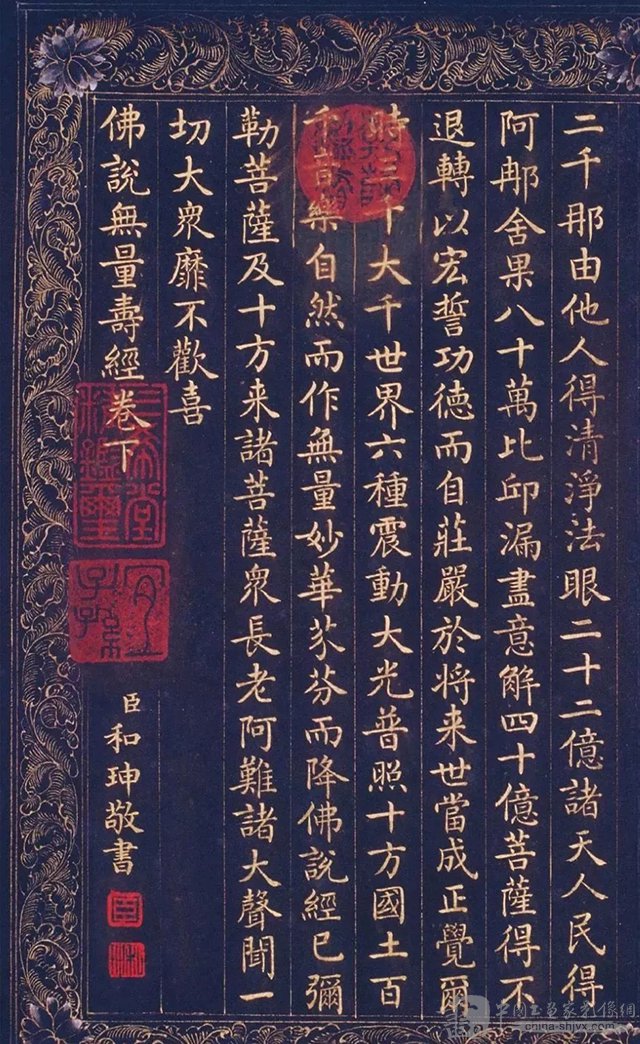 二千那由他人得清淨法眼二十二億諸天人民得
阿那舍果八十萬比邱漏盡意解四十億菩薩得不
退轉以宏誓功德而自莊嚴於将来世當成正覺爾
時三千大千世界六種震動大光普照十方國土百
千音樂自然而作無量妙華芬芬而降佛說經已彌
勒菩薩及十方来諸菩薩衆長老阿難諸大聲聞一
切大衆靡不歡喜
佛說無量壽經卷下
臣和珅敬書
三希堂精鑑璽
宜子孫
中國書画家光像網
china-shjvx.com